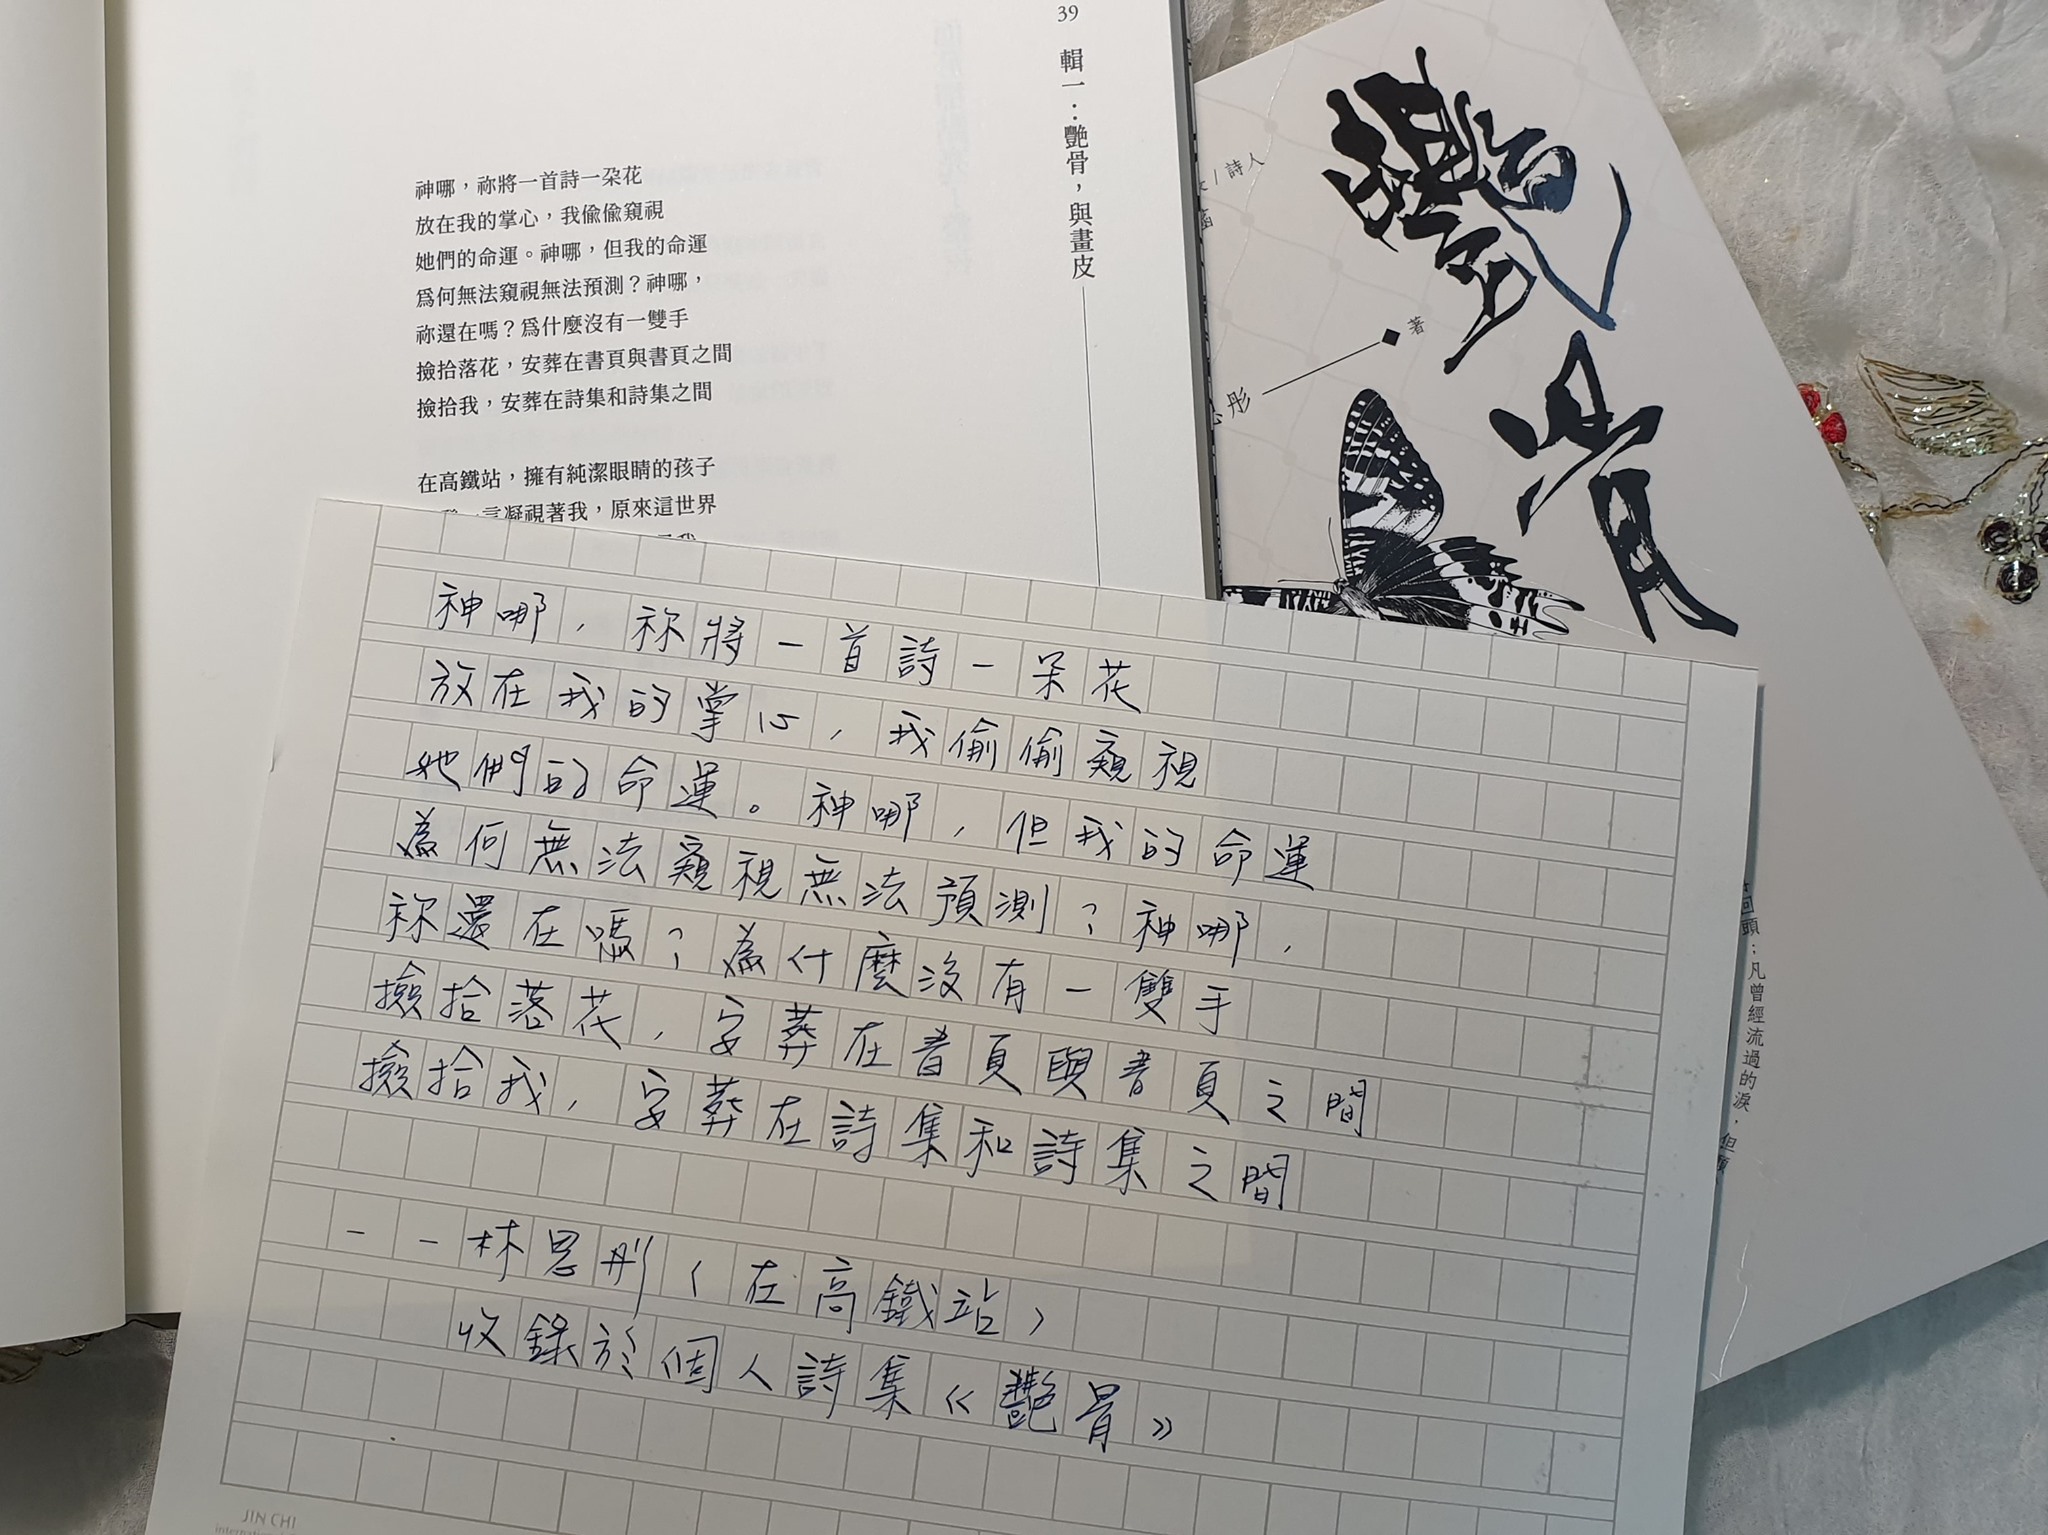 39
輯一：艷骨，與畫皮
神哪，祢將一首詩一朶花
放在我的掌心，我偷偷窺視
她們的命運。神哪，但我的命運
爲何無法窺視無法預測？神哪，
祢還在嗎？爲什麼沒有一雙手
撿拾落花，安葬在書頁與書頁之間
撿拾我，安葬在詩集和詩集之間
在高鐵站，擁有純潔眼睛的孩子
凝視著我，原來這世界
艷骨
詩人
著
彤
回頭：凡曾經流過的淚，但
神哪，祢將一首詩一朵花
放在我的掌心，我偷偷窺視
她們的命運。神哪，但我的命運
為何無法窺視無法預測？神哪，
祢還在嗎？為什麼沒有一雙手
撿拾落花，安葬在書頁與書頁之間
撿拾我，安葬在詩集和詩集之間
——林思彤〈在高鐵站〉
收錄於個人詩集《艷骨》
JIN CHI